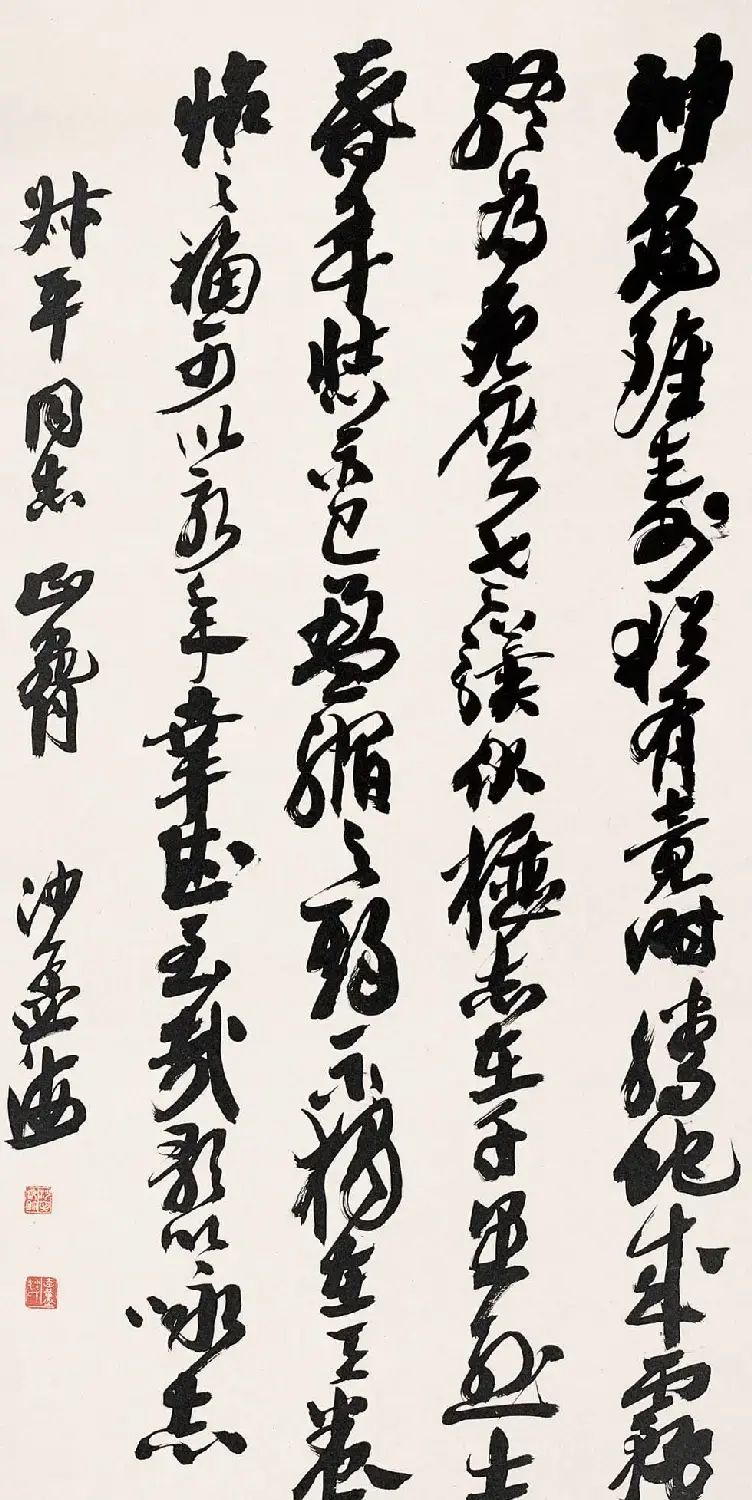 神龜雖壽猶有竟時騰蛇成霧
終為灰老驥伏櫪志在千里烈士
暮年壯心不已盈縮之期不獨在天養
怡之福可以永年幸甚至哉歌以咏志
平同志正 沙孟海